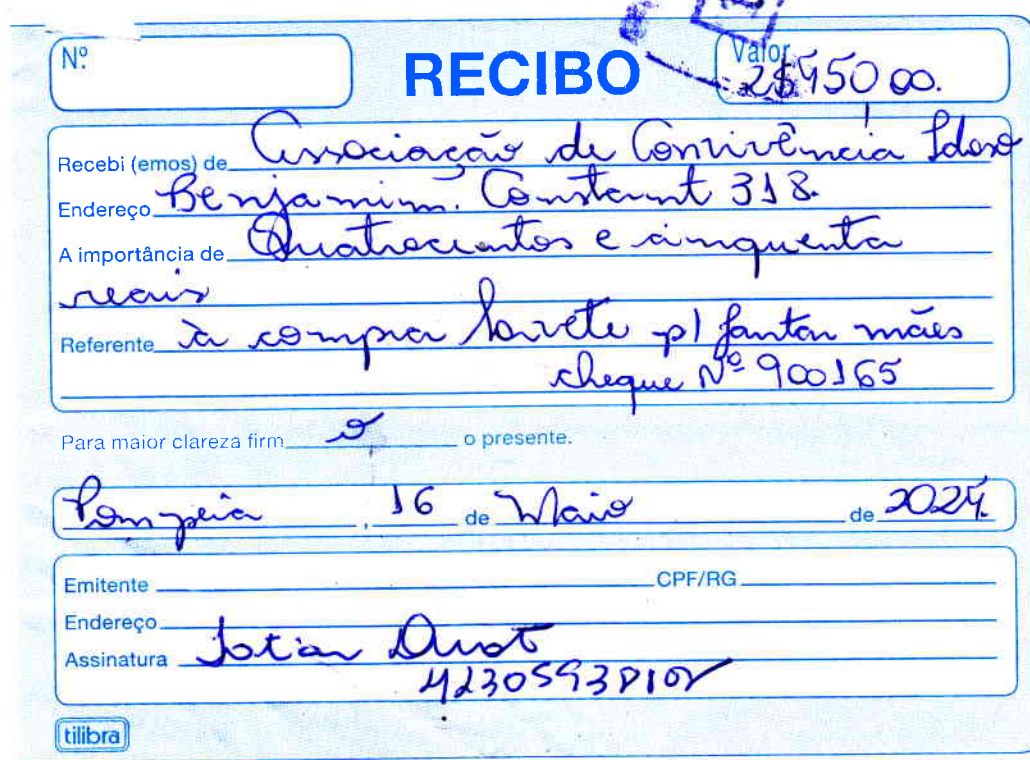 Nº
RECIBO
Valor
450 00.
Recebi (emos) de Associação de Convivência Idoso
Endereço Benjamim. Constant 318.
A importância de Quatrocentos e cinquenta
reais
Referente à compra sorvete p/ jantar mães
cheque Nº 900165
Para maior clareza firm o o presente.
Pompeia , 16 de Maio de 2024.
Emitente CPF/RG
Endereço
Assinatura
tilibra